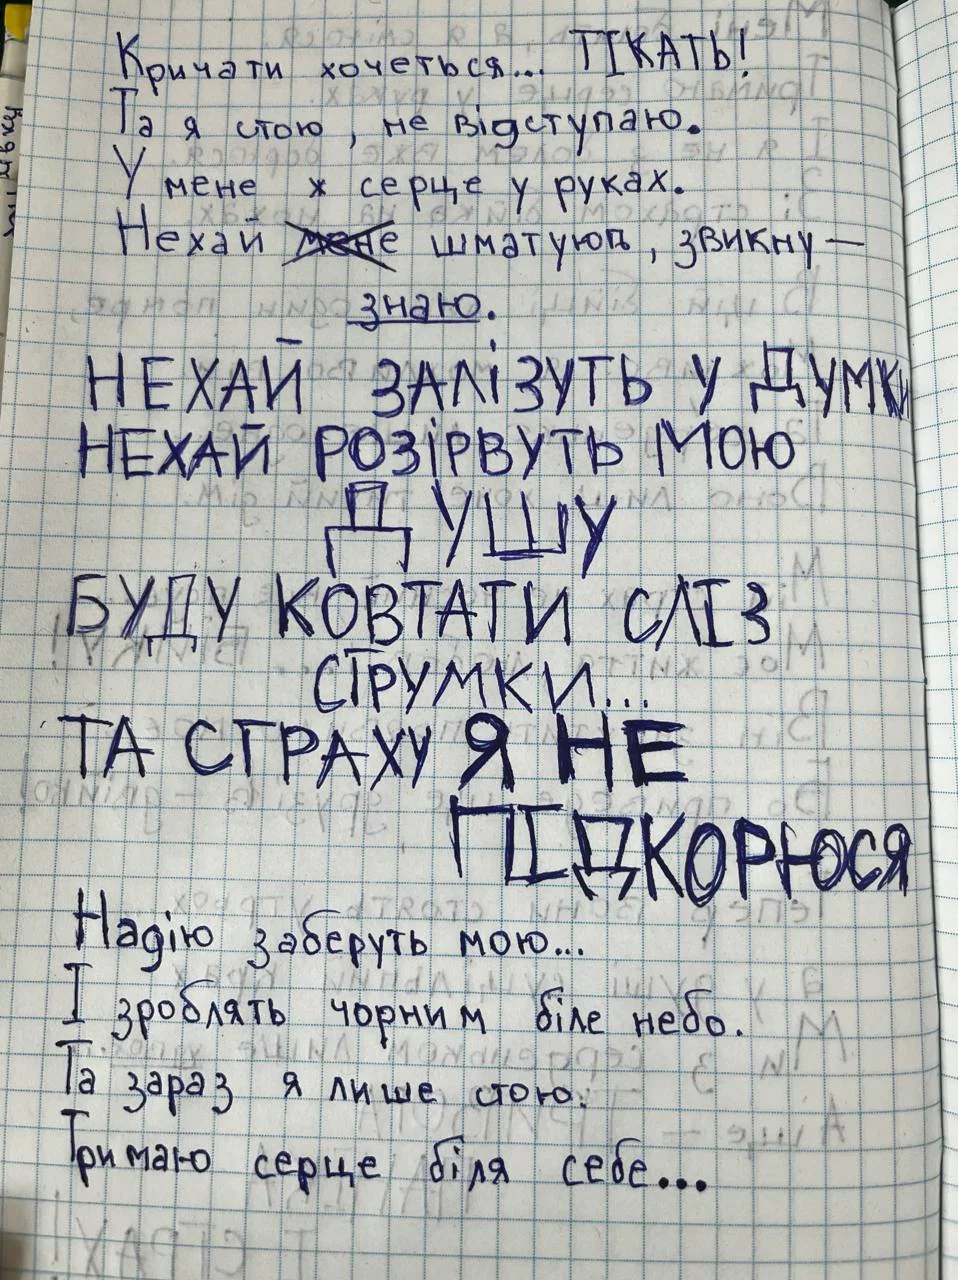 Кричати хочеться... ТІКАТЬ!
Та я стою, не відступаю.
У мене ж серце у руках.
Нехай мене шматують, звикну —
знаю.
НЕХАЙ ЗАЛІЗУТЬ У ДУМКИ
НЕХАЙ РОЗІРВУТЬ МОЮ
ДУШУ
БУДУ КОВТАТИ СЛІЗ
СТРУМКИ...
ТА СТРАХУ Я НЕ
ПІДКОРЮСЯ
Надію заберуть мою...
І зроблять чорним біле небо.
Та зараз я лише стою.
Тримаю серце біля себе...